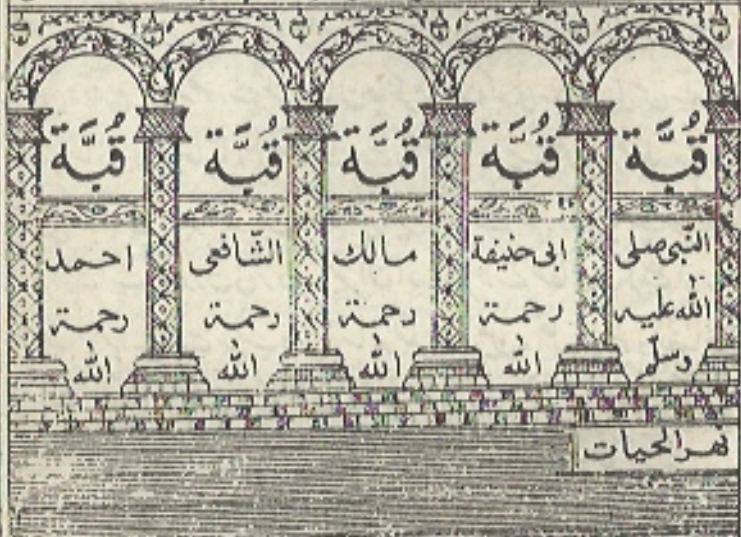 قُبَّة
النّبى صلى
الله عليه
وسلّم
قُبَّة
ابى حنيفة
رحمة
الله
قُبَّة
مالك
رحمة
الله
قُبَّة
الشّافعى
رحمة
الله
قُبَّة
احمد
رحمة
الله
نهر الحيات